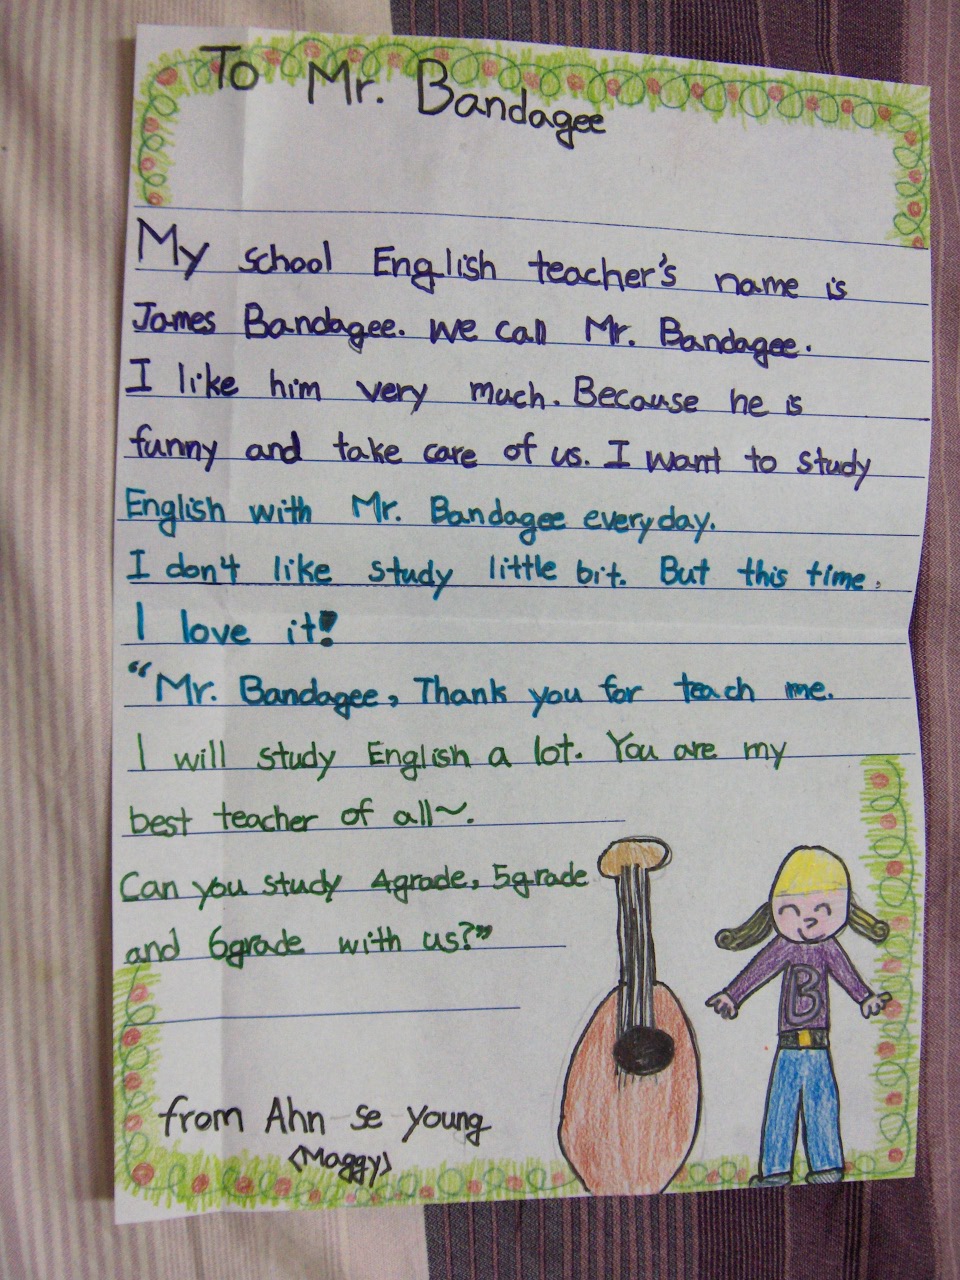 To Mr. Bandagee
My school English teacher's name is
James Bandagee. We call Mr. Bandagee.
I like him very much. Because he is
funny and take care of us. I want to study
English with Mr. Bandagee everyday.
I don't like study little bit. But this time.
I love it!
“Mr. Bandagee, Thank you for teach me.
I will study English a lot. You are my
best teacher of all~.
Can you study 4grade, 5grade
and 6grade with us?”
B
from Ahn se young
<Maggy>